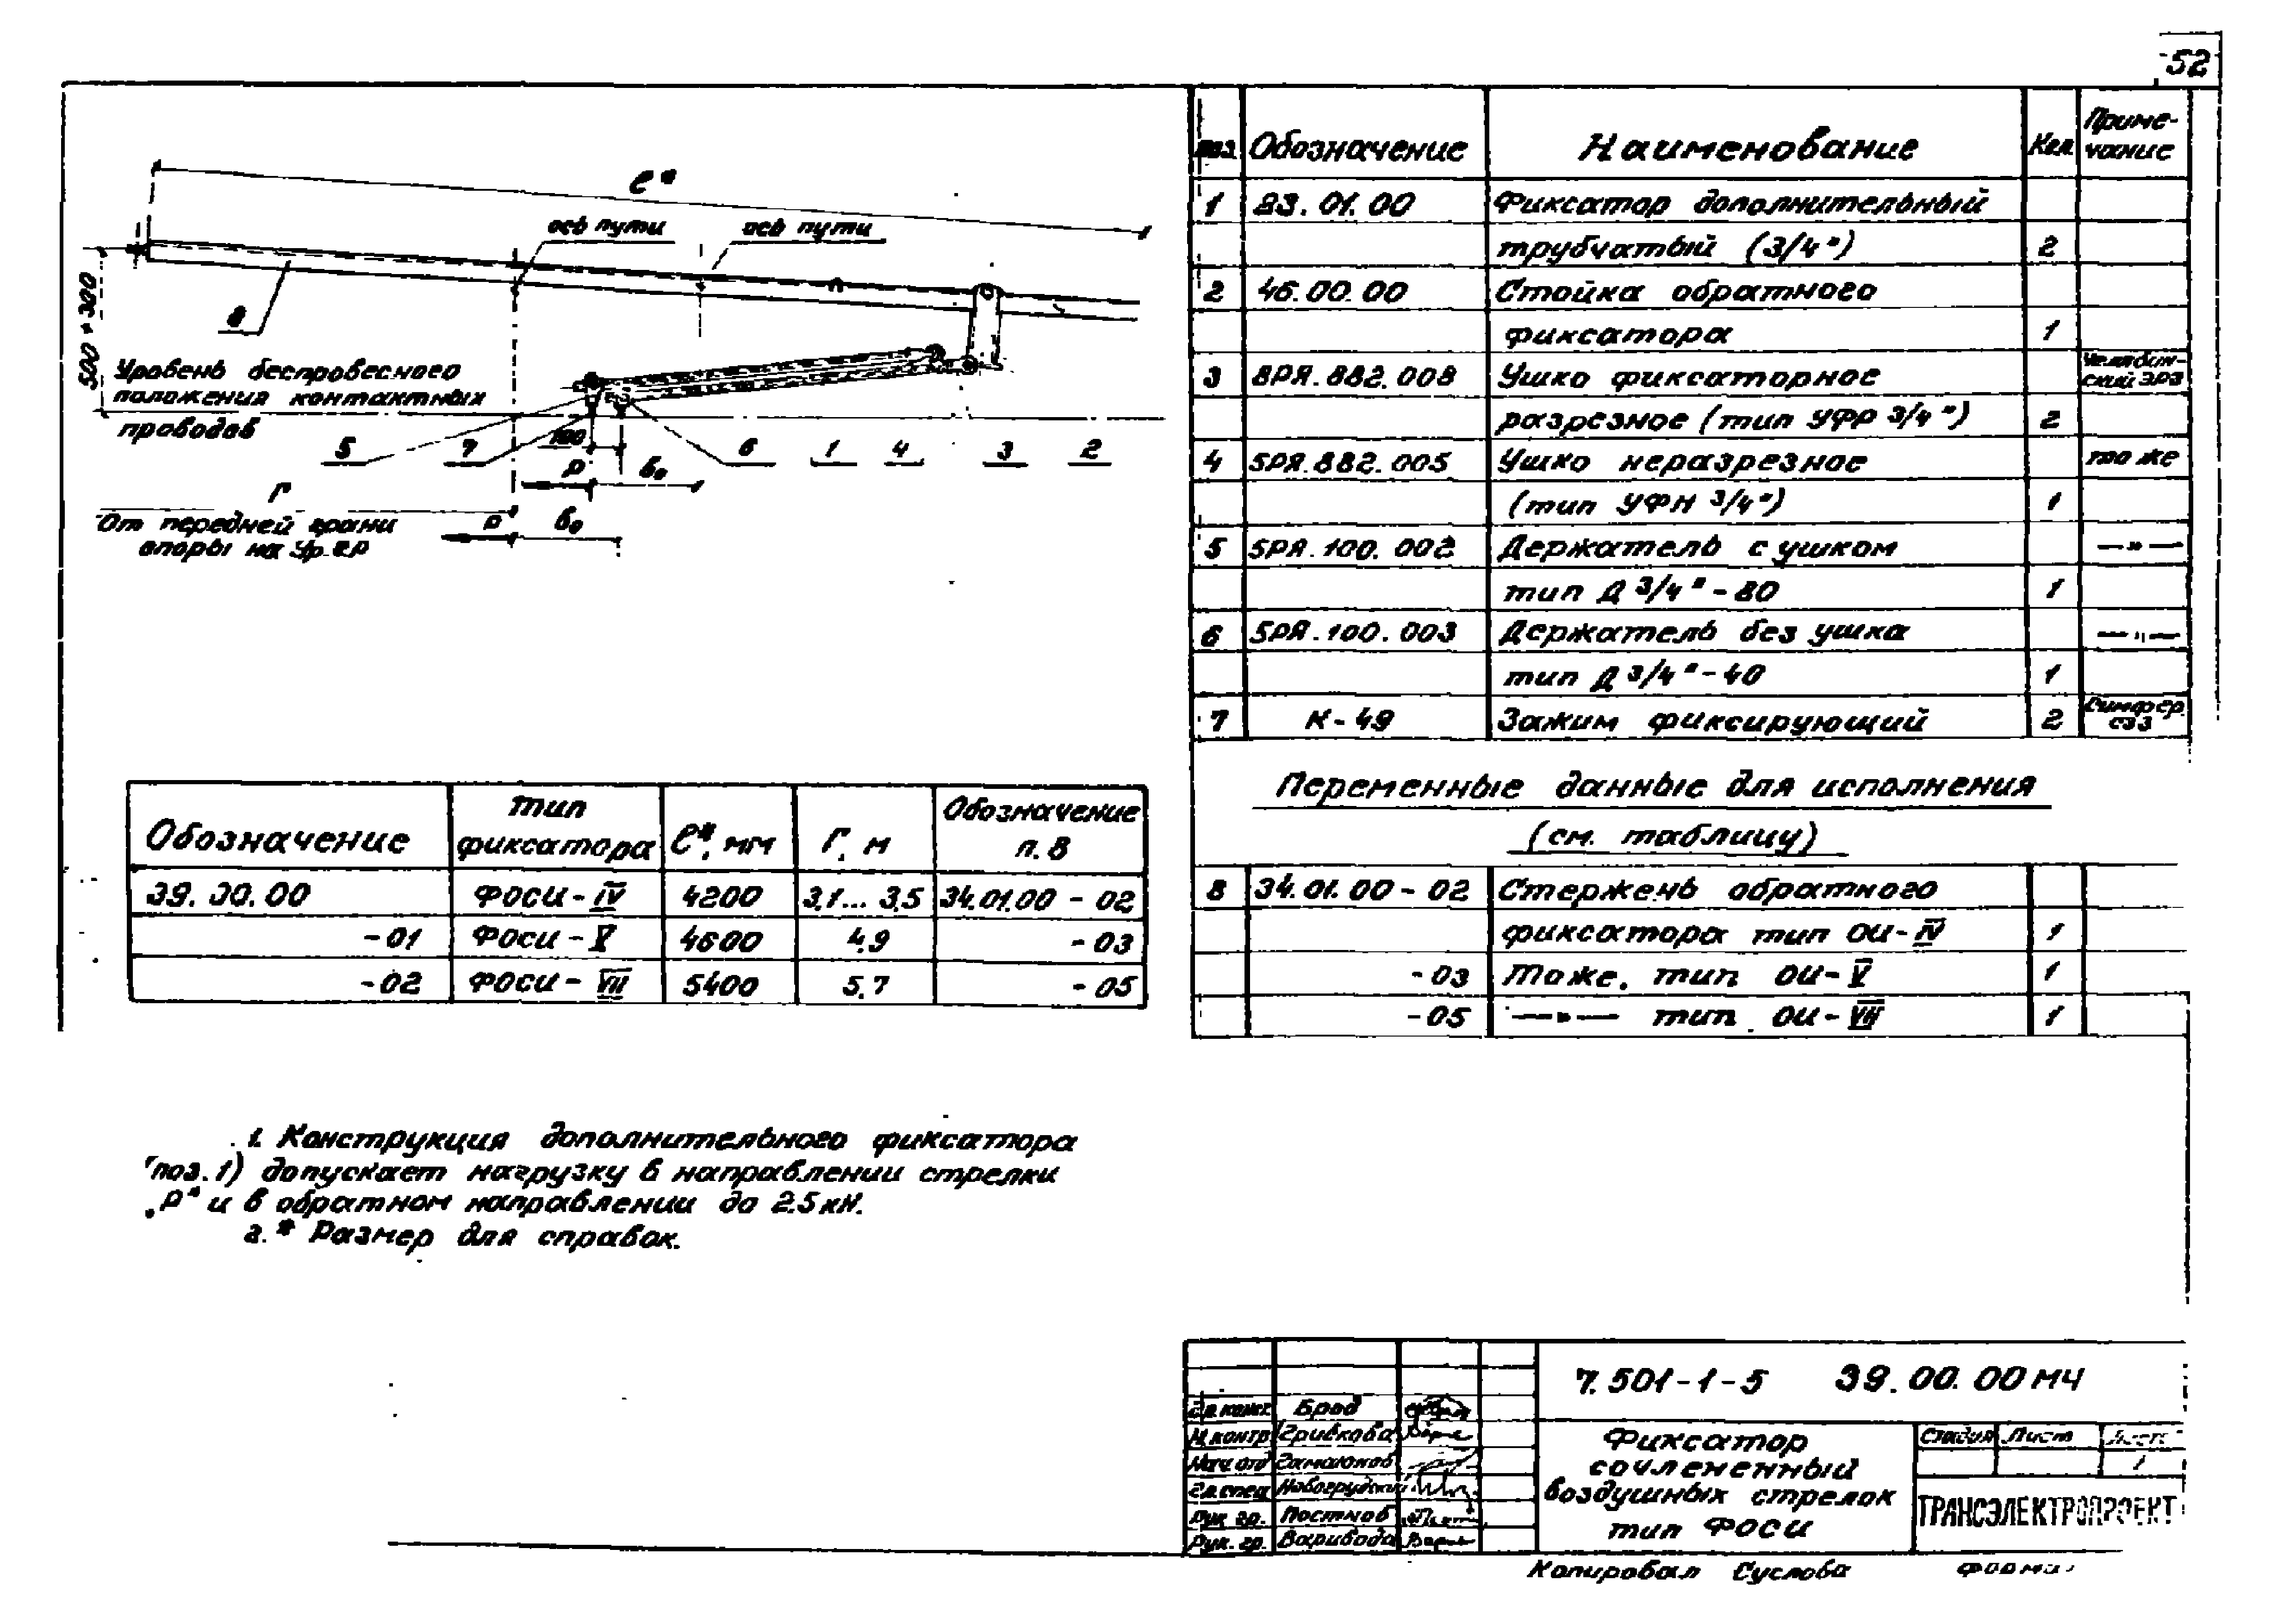 52
ℓ*
ось пути
ось пути
500 + 300
8
Уровень беспровесного
положения контактных
проводов
100
5 7 6 1 4 3 2
Р б₀
Г
От передней грани
опоры на Ур.гр
Р б₀
поз. Обозначение Наименование Кол Приме-
чание
1 23.01.00 Фиксатор дополнительный
трубчатый (3/4") 2
2 46.00.00 Стойка обратного
фиксатора 1
3 8РЯ.882.008 Ушко фиксаторное Челябин-
ский ЭРЗ
разрезное (тип УФР 3/4") 2
4 5РЯ.882.005 Ушко неразрезное то же
(тип УФН 3/4") 1
5 5РЯ.100.002 Держатель с ушком —"—
тип Д 3/4" - 80 1
6 5РЯ.100.003 Держатель без ушка —"—
тип Д 3/4" - 40 1
7 К-49 Зажим фиксирующий 2 Симфер.
СЭЗ
Переменные данные для исполнения
(см. таблицу)
8 34.01.00 - 02 Стержень обратного
фиксатора тип ОИ-IV 1
-03 Тоже. тип ОИ-V 1
-05 —"— тип ОИ-VII 1
Обозначение тип
фиксатора ℓ*, мм Г, м Обозначение
п. 8
39.00.00 ФОСИ-IV 4200 3,1... 3,5 34.01.00 - 02
-01 ФОСИ-V 4600 4,9 - 03
-02 ФОСИ-VII 5400 5,7 - 05
1. Конструкция дополнительного фиксатора
(поз.1) допускает нагрузку в направлении стрелки
„Р" и в обратном направлении до 2.5 кН.
2. * Размер для справок.
7.501-1-5 39.00.00 МЧ
Гл. конст. Брод
Н. контр Гривкова
Нач. отд Гамаюнов
Гл. спец Новогрудский
Рук. гр. Постнов
Рук. гр. Варивода
Фиксатор
сочлененный
воздушных стрелок
тип ФОСИ
Стадия Лист
1
ТРАНСЭЛЕКТРОПРОЕКТ
Копировал Суслова